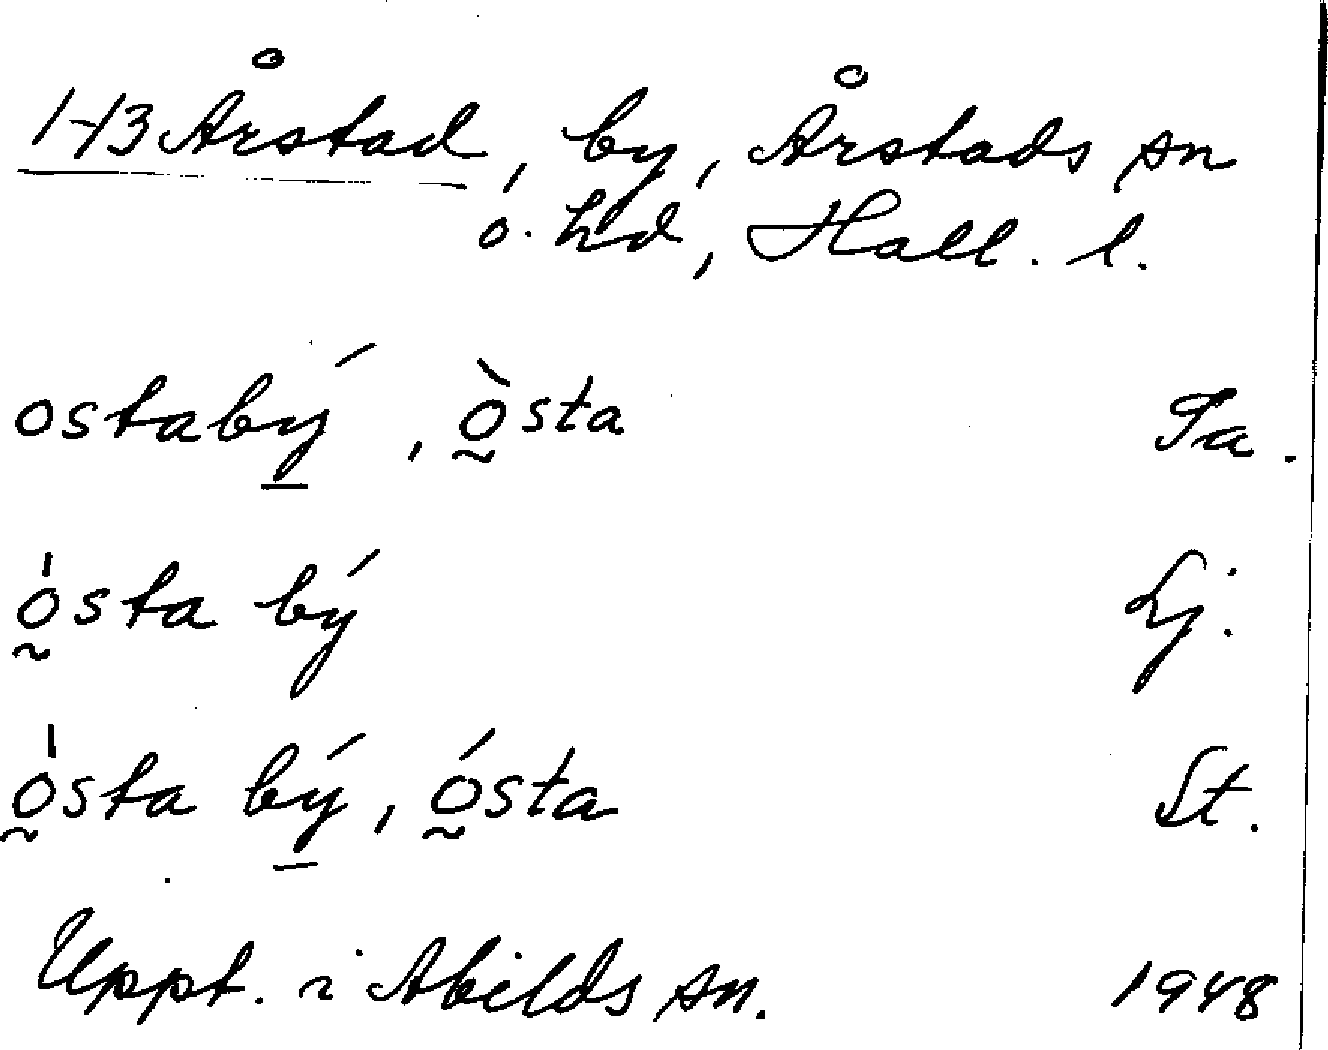 1-13 Årstad, by, Årstads sn
ö. hd, Hall. l.
ostabý, ò̰̖sta Ta.
ó̰sta bý Lj.
ó̰sta bý, ó̰sta St.
Uppt. i Abilds sn. 1948